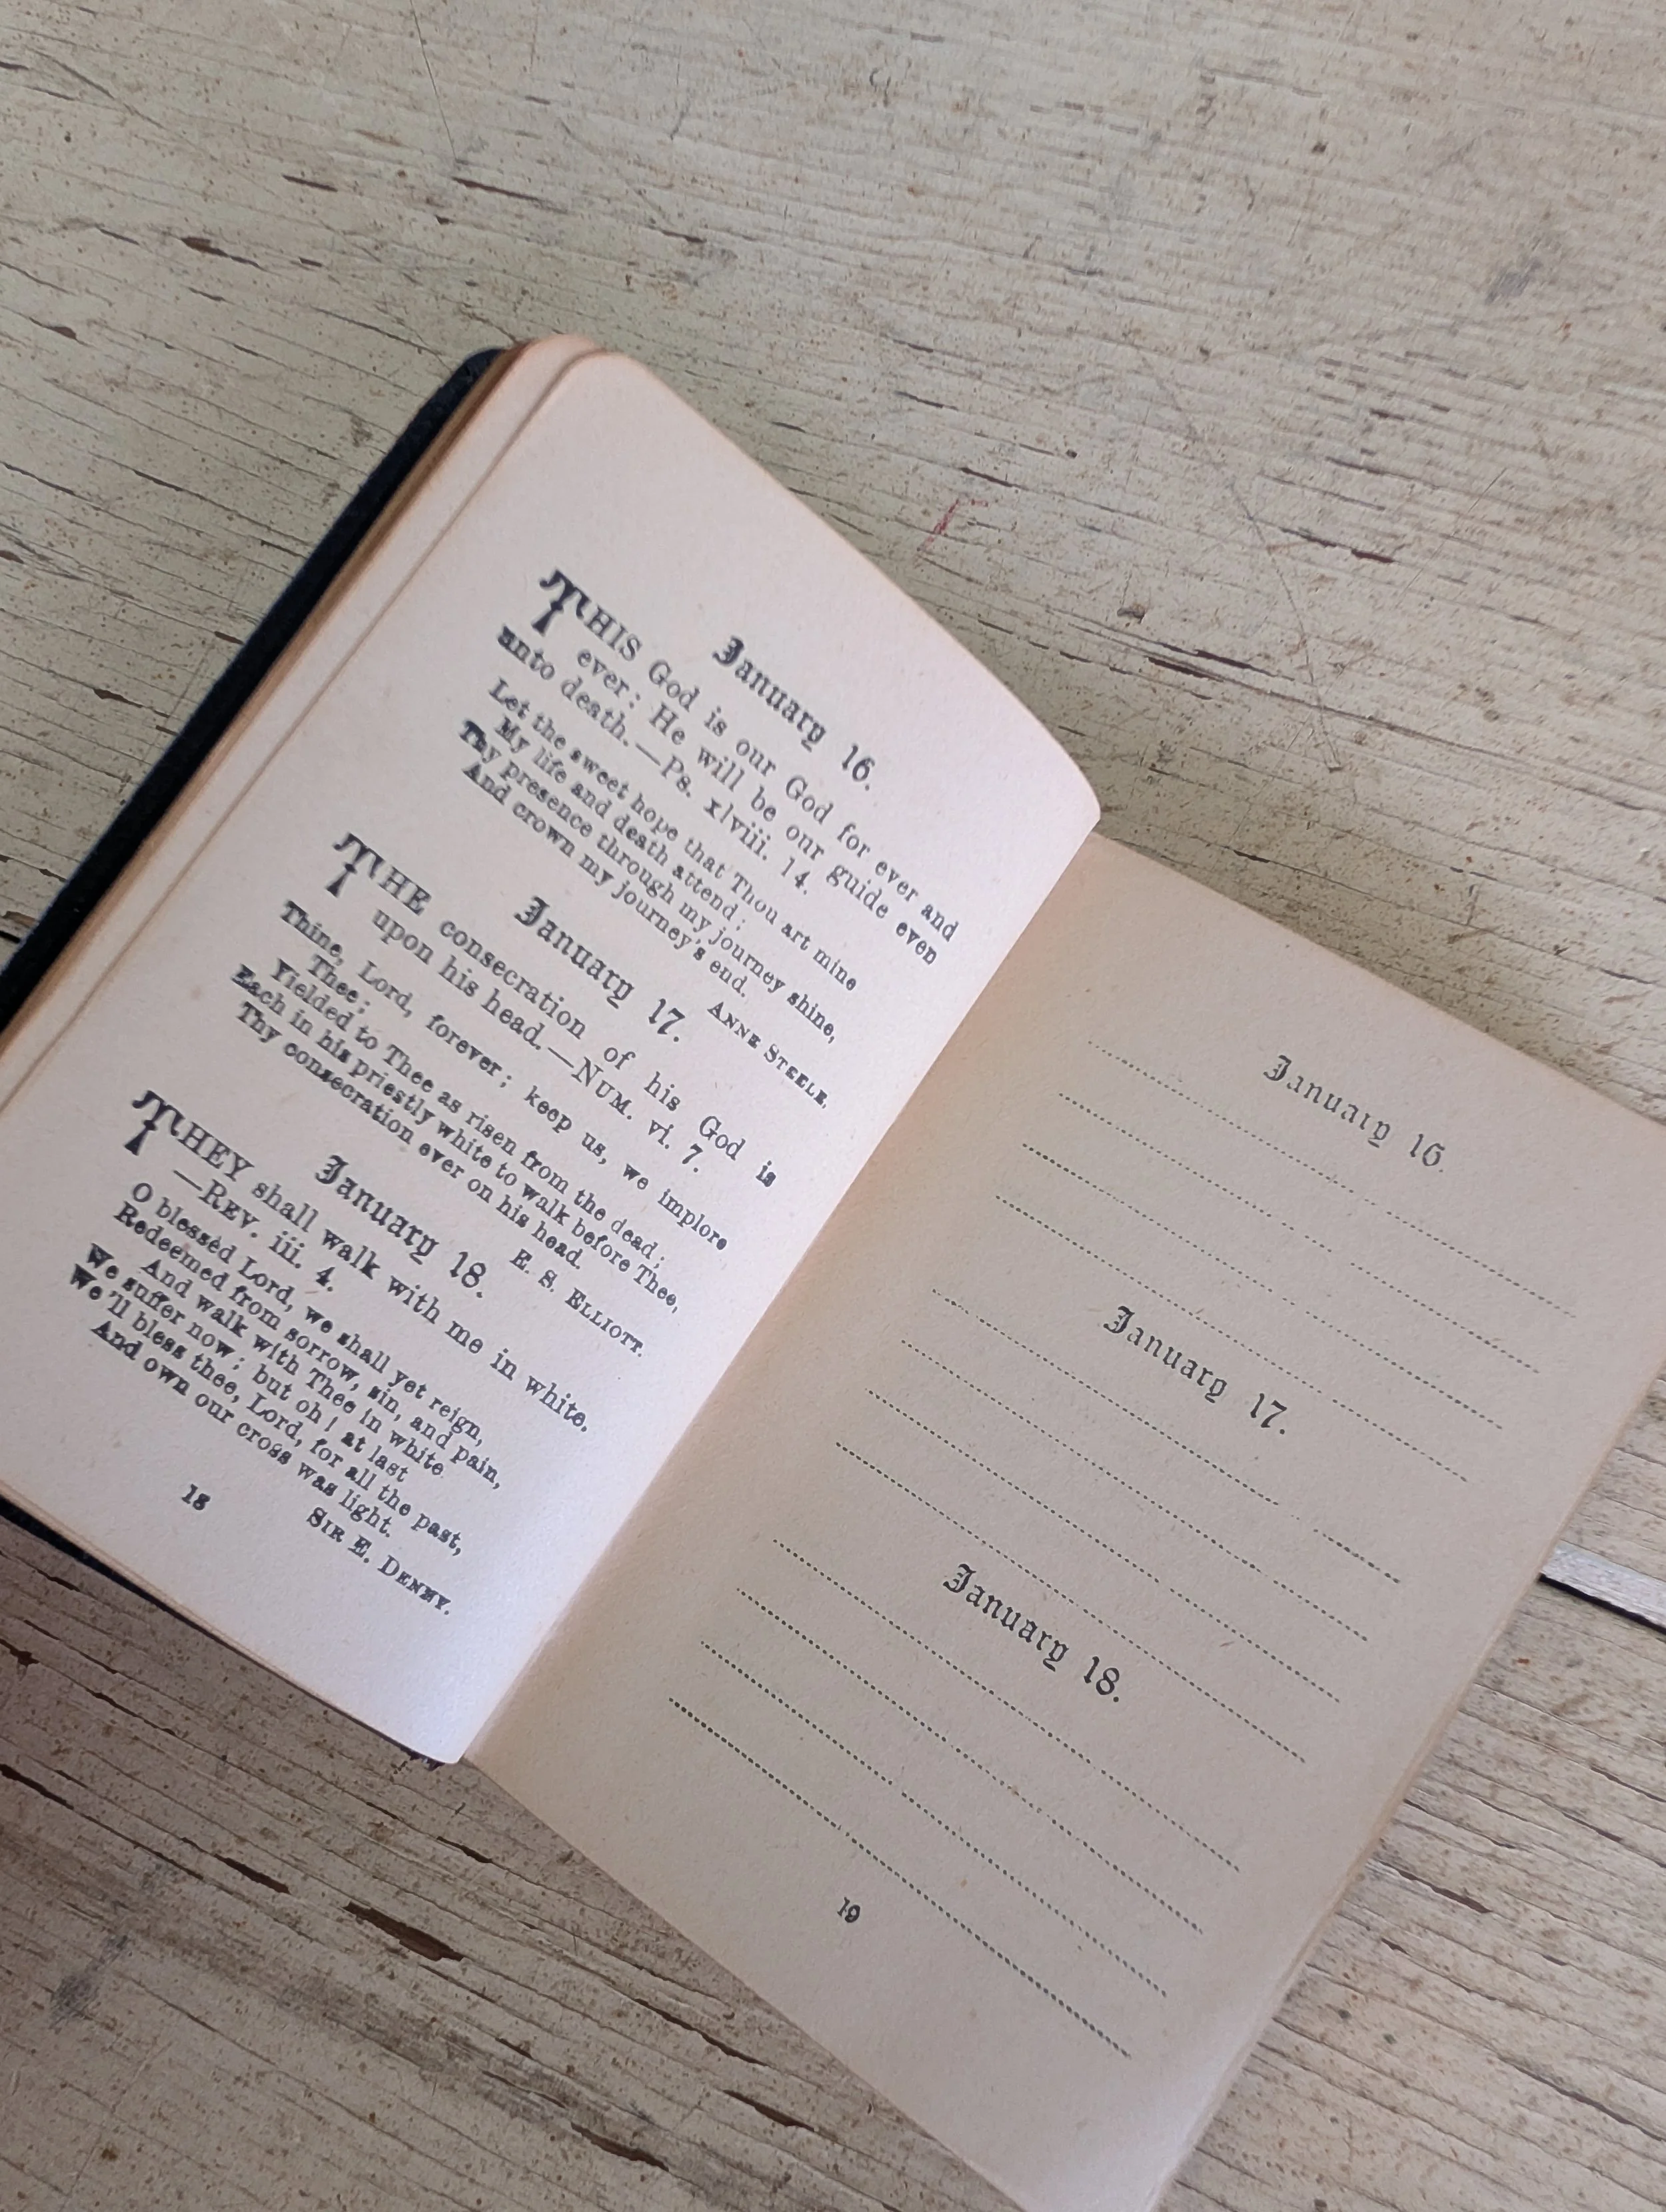 January 16.
THIS God is our God for ever and
ever: He will be our guide even
unto death.—Ps. xlviii. 14.
Let the sweet hope that Thou art mine
My life and death attend;
Thy presence through my journey shine,
And crown my journey's end.
ANNE STEELE.
January 17.
THE consecration of his God is
upon his head.—NUM. vi. 7.
Thine, Lord, forever; keep us, we implore
Thee;
Yielded to Thee as risen from the dead;
Each in his priestly white to walk before Thee,
Thy consecration ever on his head.
E. S. ELLIOTT.
January 18.
THEY shall walk with me in white.
—REV. iii. 4.
O blessèd Lord, we shall yet reign,
Redeemed from sorrow, sin, and pain,
And walk with Thee in white
We suffer now; but oh! at last
We'll bless thee, Lord, for all the past,
And own our cross was light.
SIR E. DENNY.
18
January 16.
January 17.
January 18.
19